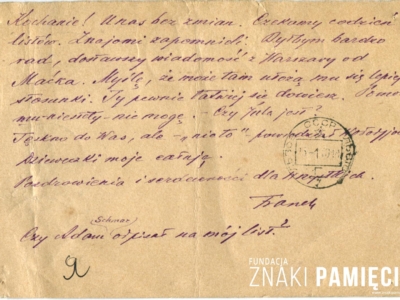 Kochanie! U nas bez zmian. Czekamy codzień
listów. Znajomi zapomnieli. Byłbym bardzo
rad, dostawszy wiadomość z Warszawy od
Maćka. Myślę, że może tam ułożą mu się lepiej
stosunki. Ty pewnie łatwiej się dowiesz. Pomóc
mu niestety - nie mogę. - Czy Jula jest?
Tęsknię do Was, ale - „nic to” powiedział Wołodyj
Dzieweczki moje całuję.
Pozdrowienia i serdeczności dla wszystkich.
Franek
Czy Adam odpisał na mój list?
FUNDACJA
ZNAKI PAMIĘCI